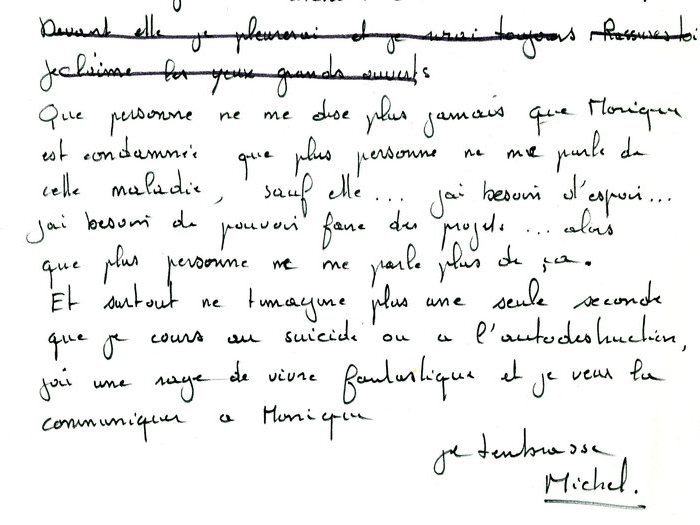 Devant elle je pleurerai et je serai toujours Rassures toi
les yeux grands ouverts
Que personne ne me dise plus jamais que Monique
est condamnée que plus personne ne me parle de
cette maladie, sauf elle... jai besoin d'espoir...
jai besoin de pouvoir faire des projets... alors
que plus personne ne me parle plus de ça.
Et surtout ne timagine plus une seule seconde
que je cours au suicide ou a l'autodestruction,
jai une rage de vivre fantastique et je veux la
communiquer a Monique
je tembrasse
Michel.